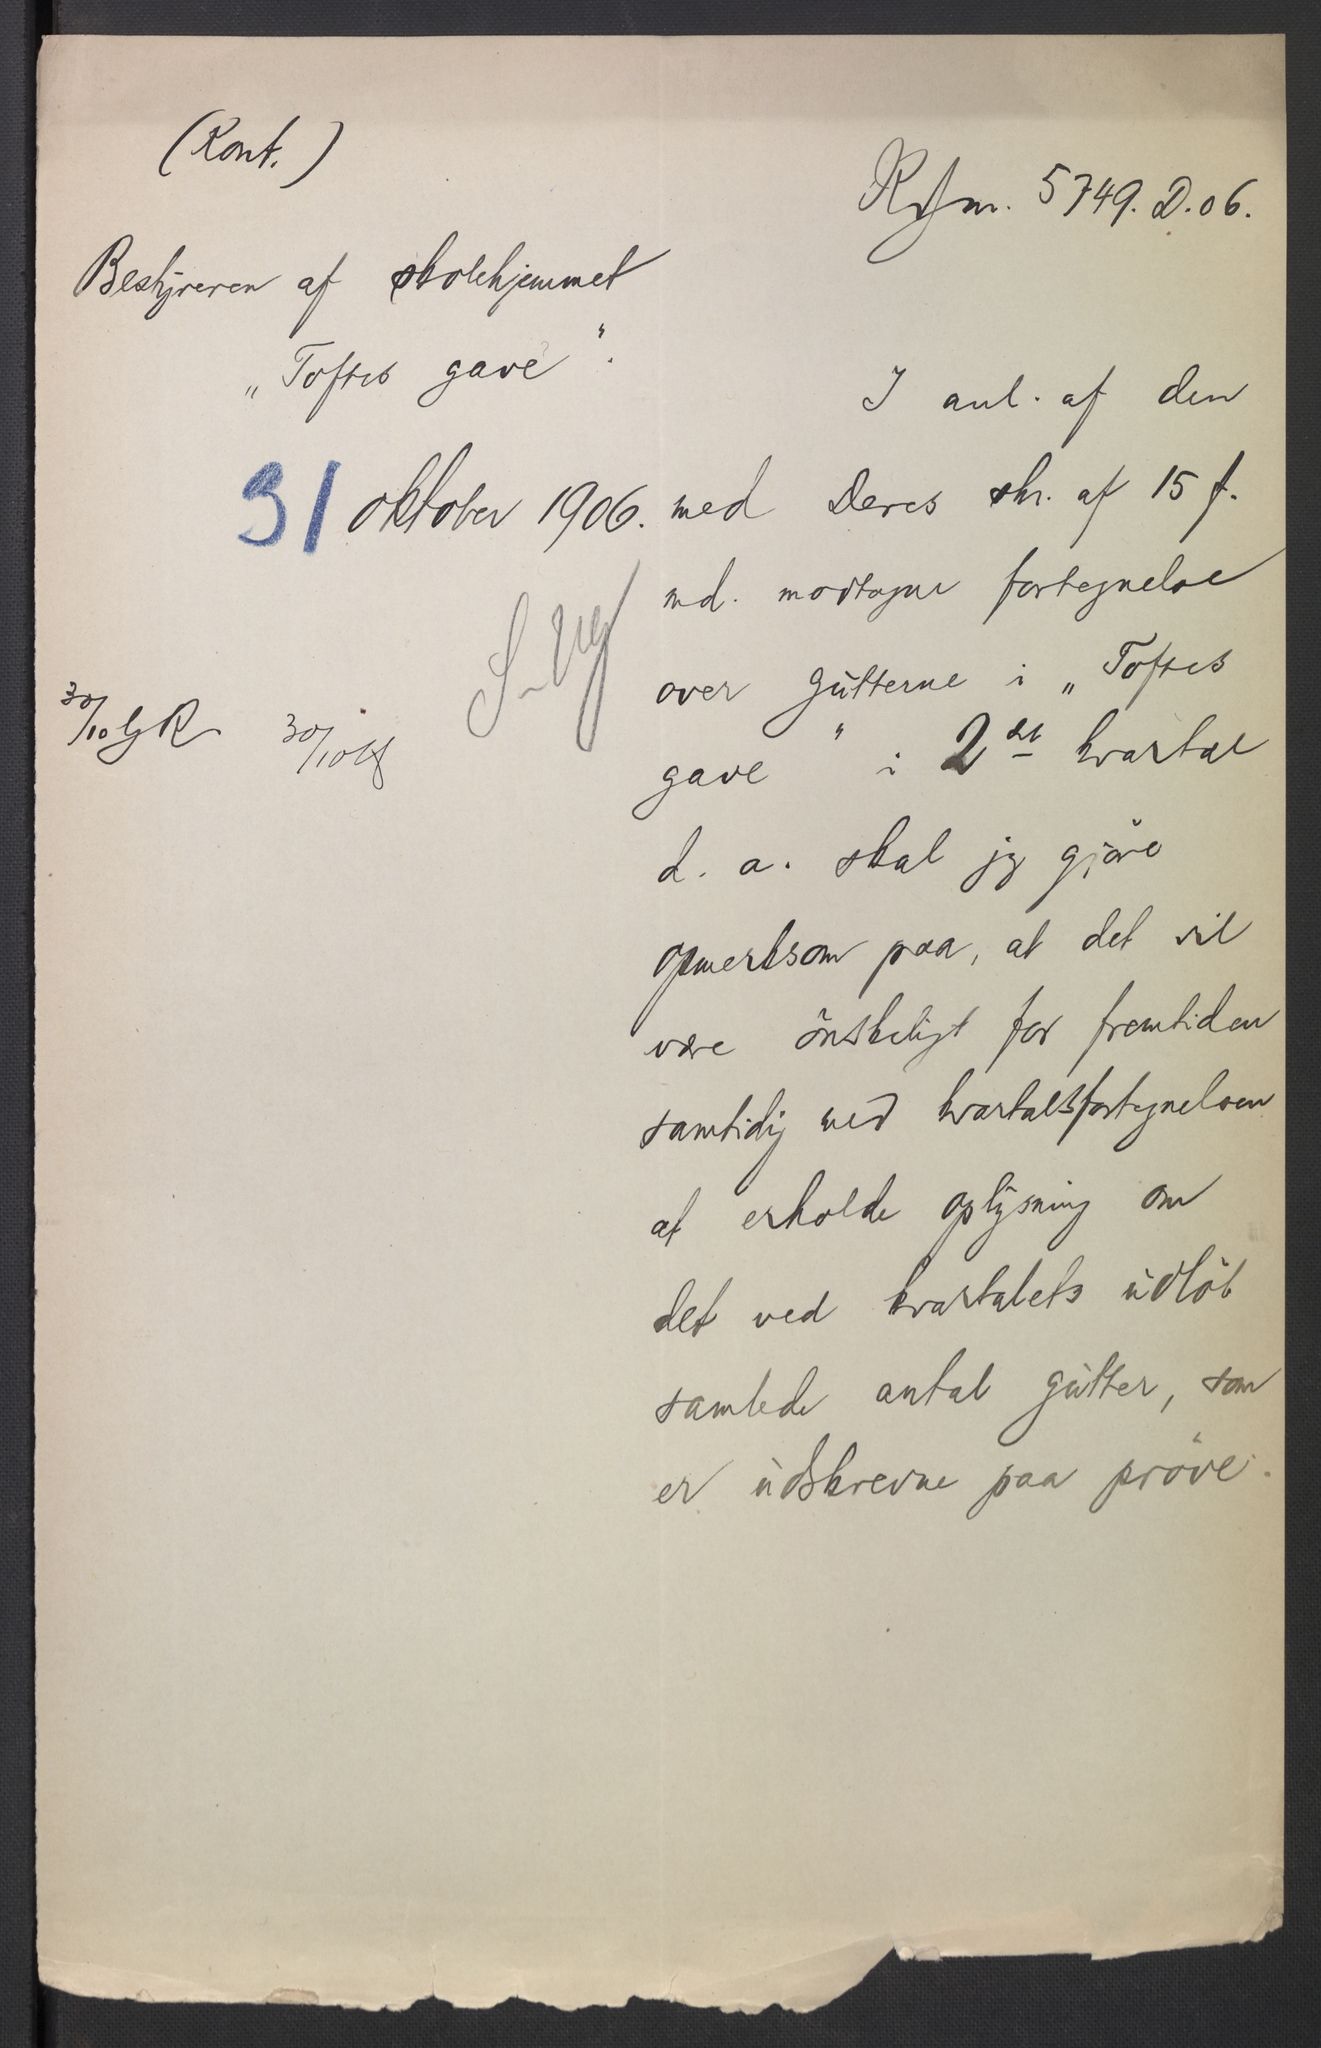 (Kont.)
5749. D. 06.
Bestyreren af skolehjemmet
„Toftes gave".
31 oktober 1906.
30/10 GR 30/10
I anl. af den
med Deres skr. af 15 f.
md. modtagne fortegnelse
over gutterne i „Toftes
gave" i 2det kvartal
d. a. skal jeg gjöre
opmerksom paa, at det vil
være önskeligt for fremtiden
samtidig med kvartalsfortegnelsen
at erholde oplysning om
det ved kvartalets udlöb
samlede antal gutter, som
er udskrevne paa pröve.